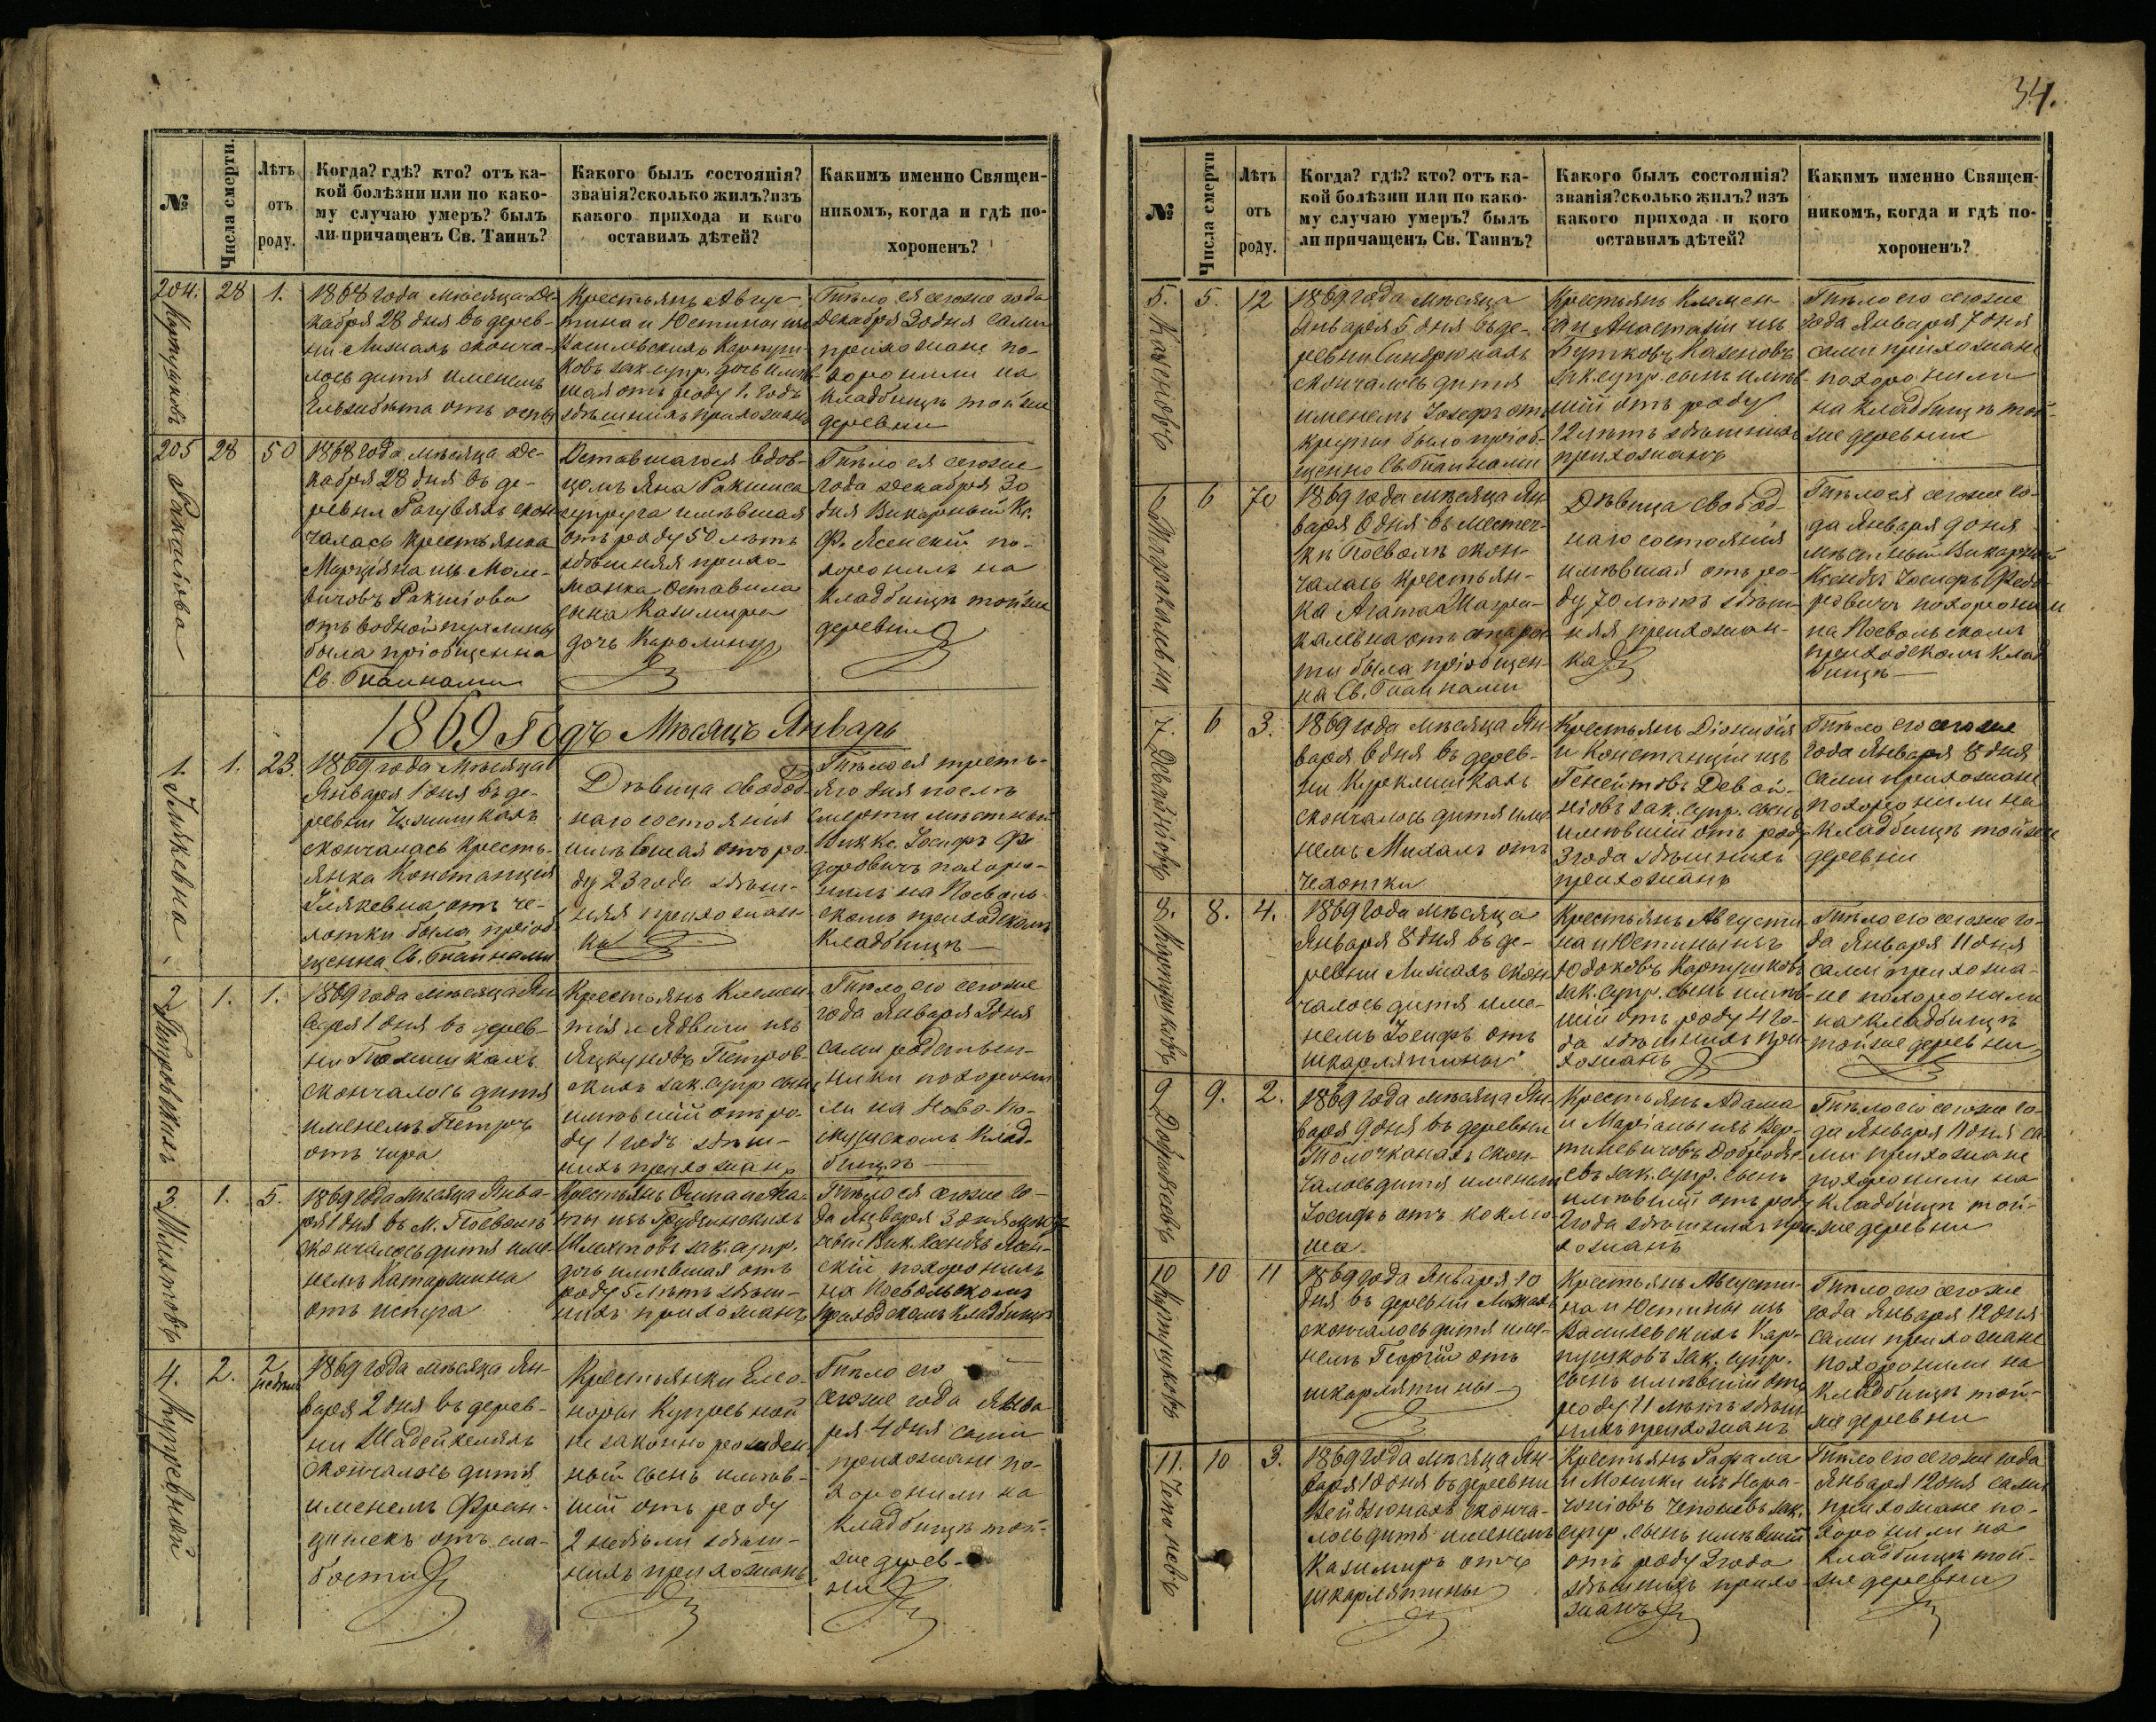 34.
№
Числа смерти.
Лѣтъ
отъ
роду.
Когда? гдѣ? кто? отъ ка-
кой болѣзни или по како-
му случаю умеръ? былъ
ли причащенъ Св. Таинъ?
Какого былъ состоянія?
званія? сколько жилъ? изъ
какого прихода и кого
оставилъ дѣтей?
Какимъ именно Священ-
никомъ, когда и гдѣ по-
хороненъ?
204.
Картушковъ
28
1.
1868 года мѣсяца Де-
кабря 28 дня въ дерев-
ни Лижахъ сконча-
лось дитя именемъ
Ельзибѣта отъ оспы
Крестьянъ Авгус-
тина и Юстины изъ
Василевскихъ Картуш-
ковъ зак. супр. дочь имѣв-
шая отъ роду 1. годъ
здѣшнихъ прихожанъ
Тѣло ея сегоже года
Декабря 30 дня сами
прихожане по-
хоронили на
кладбищѣ тойже
деревни
205
28
50
1868 года мѣсяца Де-
кабря 28 дня въ де-
ревни скон-
чалась крестьянка
Марціяна изъ
отъ водной пухлины
была пріобщенна
Св. Тайнами
Оставшагося вдов-
цомъ Яна
супруга имѣвшая
отъ роду 50 лѣтъ
здѣшняя прихо-
жанка оставила
сына Казимира
дочь Каролину
Тѣло ея сегоже
года Декабря 30
дня Викарный Кс.
Ф. Ясенскій по-
хоронилъ на
кладбищѣ тойже
деревни
1869 Годъ Мѣсяцъ Январь
1.
1.
23.
1869 года Мѣсяца
Января 1 дня въ де-
ревни
скончалась кресть-
янка Констанція
отъ че-
хотки была пріоб-
щенна Св. Тайнами
Дѣвица свобод-
наго состоянія
имѣвшая отъ ро-
ду 23 года здѣш-
няя прихожан-
ка
Тѣло ея треть-
яго дня послѣ
смерти мѣстный
Вик. Кс. Іосифъ Фе-
доровичъ похоро-
нилъ на Посволь-
скомъ приходскомъ
кладбищѣ
2
Петровскихъ
1.
1.
1869 года мѣсяца Ян-
варя 1 дня въ дерев-
ни
скончалось дитя
именемъ Петръ
отъ
Крестьянъ Клемен-
тія и Ядвиги изъ
Петров-
скихъ зак. супр. сынъ
имѣвшій отъ ро-
ду 1 годъ здѣш-
нихъ прихожанъ
Тѣло его сегоже
года Января 3 дня
сами родствен-
ники похорони-
ли на Ново-
клад-
бищѣ
3
1.
5.
1869 года мѣсяца Янва-
ря 1 дня въ М. Посволѣ
скончалось дитя име-
немъ Катаржина
отъ испуга
Крестьянъ Осипа и Ага-
ты изъ
зак. супр.
дочь имѣвшая отъ
роду 5 лѣтъ здѣш-
нихъ прихожанъ
Тѣло ея сегоже го-
да Января 3 дня
Вик. Ксендзъ Ясен-
скій похоронилъ
на Посвольскомъ
приходскомъ кладбищѣ
4.
Купревной
2.
2
недѣли
1869 года мѣсяца Ян-
варя 2 дня въ дерев-
ни
скончалось дитя
именемъ Фран-
цишекъ отъ сла-
бости
Крестьянки Елео-
норы Купревной
не законно рожден-
ный сынъ имѣв-
шій отъ роду
2 недѣли здѣш-
нихъ прихожанъ
Тѣло его
сегоже года Янва-
ря 4 дня сами
прихожане по-
хоронили на
кладбищѣ той-
же дерев-
ни
№
Числа смерти
Лѣтъ
отъ
роду.
Когда? гдѣ? кто? отъ ка-
кой болѣзни или по како-
му случаю умеръ? былъ
ли причащенъ Св. Таинъ?
Какого былъ состоянія?
званія? сколько жилъ? изъ
какого прихода и кого
оставилъ дѣтей?
Какимъ именно Священ-
никомъ, когда и гдѣ по-
хороненъ?
5.
5.
12
1869 года мѣсяца
Января 5 дня въ де-
ревни
скончалось дитя
именемъ Іозефъ отъ
крупы было пріоб-
щенно Св. Тайнами
Крестьянъ Климен-
а и Анастазіи изъ
зак. супр. сынъ имѣв-
шій отъ роду
12 лѣтъ здѣшнихъ
прихожанъ
Тѣло его сегоже
года Января 7 дня
сами прихожане
похоронили
на кладбищѣ той-
же деревни
6
6
70
1869 года мѣсяца Ян-
варя 6 дня въ местеч-
кѣ Посволѣ скон-
чалась крестьян-
ка Агата
отъ старос-
ти была пріобщен-
на Св. Тайнами
Дѣвица свобод-
наго состоянія
имѣвшая отъ ро-
ду 70 лѣтъ здѣш-
няя прихожан-
ка
Тѣло ея сегоже го-
да Января 9 дня
мѣстный Викарный
Ксендзъ Іосифъ Федо-
ровичъ похоронилъ
на Посвольскомъ
приходскомъ клад-
бищѣ
7.
6
3.
1869 года мѣсяца Ян-
варя 6 дня въ дерев-
ни
скончалось дитя име-
немъ Михалъ отъ
чехотки
Крестьянъ Діонизія
и Констанціи изъ
зак. супр. сынъ
имѣвшій отъ роду
3 года здѣшнихъ
прихожанъ
Тѣло его сегоже
года Января 8 дня
сами прихожане
похоронили на
кладбищѣ тойже
деревни
8.
Картушковъ
8.
4.
1869 года мѣсяца
Января 8 дня въ де-
ревни Лижахъ скон-
чалось дитя име-
немъ Іосифъ отъ
шкарлятины
Крестьянъ Августи-
на и Юстины изъ
Картушковъ
зак. супр. сынъ имѣв-
шій отъ роду 4 го-
да здѣшнихъ при-
хожанъ
Тѣло его сегоже го-
да Января 11 дня
сами прихожа-
не похоронили
на кладбищѣ
тойже деревни
9
9.
2.
1869 года мѣсяца Ян-
варя 9 дня въ деревни
скон-
чалось дитя именемъ
Іосифъ отъ коклю-
ша
Крестьянъ Адама
и Маріаны изъ
зак. супр. сынъ
имѣвшій отъ роду
2 года здѣшнихъ при-
хожанъ
Тѣло его сегоже го-
да Января 11 дня са-
ми прихожане
похоронили на
кладбищѣ той-
же деревни
10
Картушковъ
10
11
1869 года Января 10
дня въ деревни Лижахъ
скончалось дитя име-
немъ Георгій отъ
шкарлятины
Крестьянъ Августи-
на и Юстины изъ
Василевскихъ Кар-
тушковъ зак. супр.
сынъ имѣвшій отъ
роду 11 лѣтъ здѣш-
нихъ прихожанъ
Тѣло его сегоже
года Января 12 дня
сами прихожане
похоронили на
кладбищѣ той-
же деревни
11.
10
3.
1869 года мѣсяца Ян-
варя 10 дня въ деревни
сконча-
лось дитя именемъ
Казимиръ отъ
шкарлятины
Крестьянъ Рафала
и Моники изъ
зак.
супр. сынъ имѣвшій
отъ роду 3 года
здѣшнихъ прихо-
жанъ
Тѣло его сегоже года
Января 12 дня сами
прихожане по-
хоронили на
кладбищѣ той-
же деревни